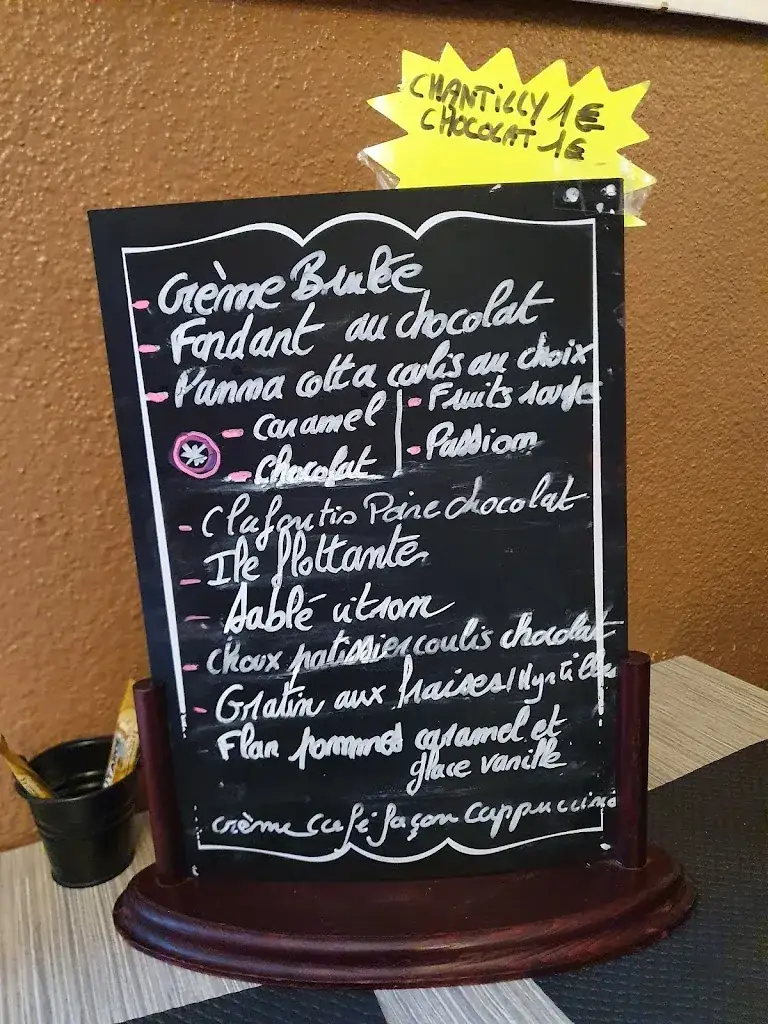 CHANTILLY 1€
CHOCOLAT 1€
- Crème Brulée
- Fondant au chocolat
- Panna cotta coulis au choix
- Caramel
- Chocolat
- Fruits rouges
- Passion
- Clafoutis Poire chocolat
- Ile flottante
- Sablé citron
- Choux patissier coulis chocolat
- Gratin aux fraises/Myrtilles
Flan pommes caramel et
glace vanille
crème café façon cappuccino